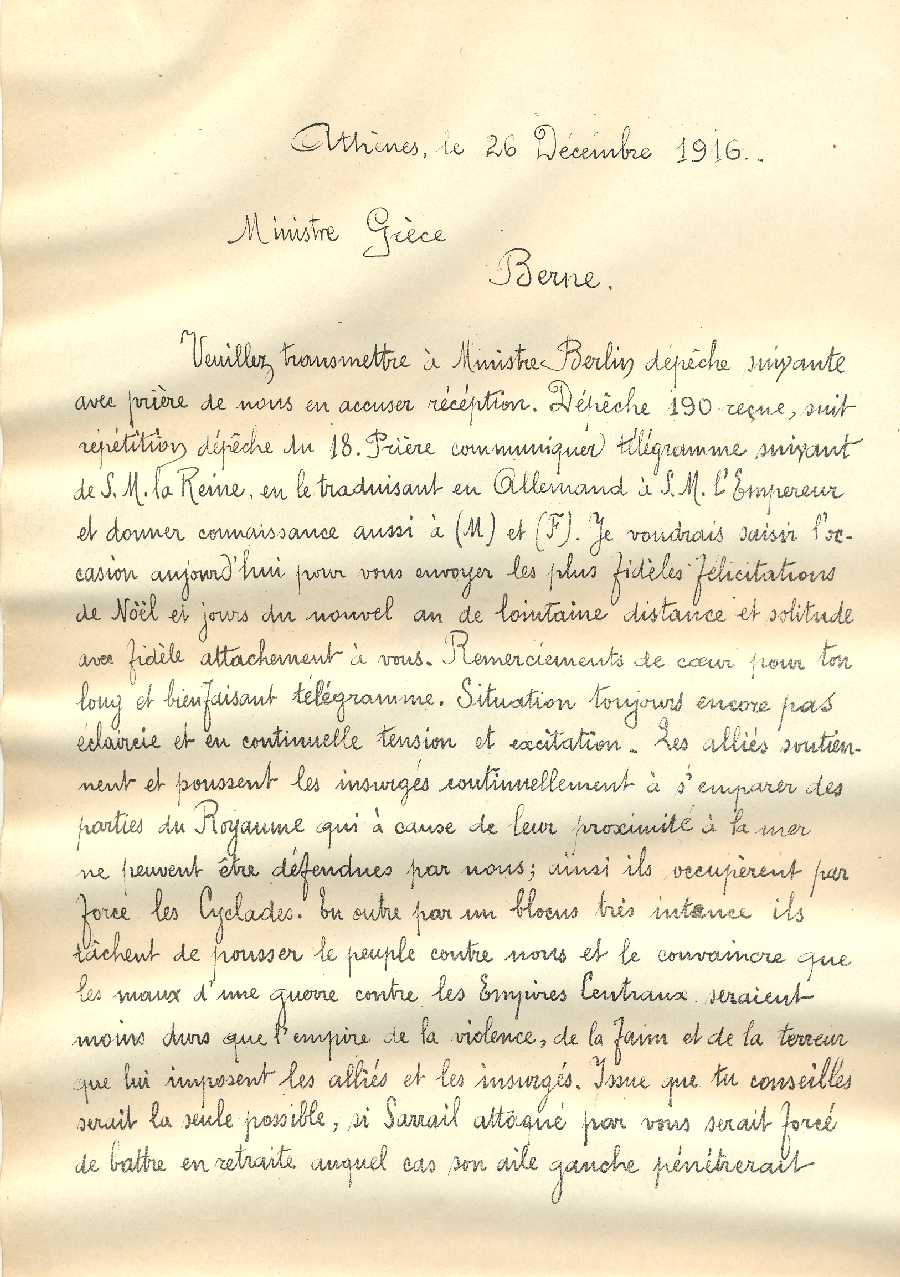 Athènes, le 26 Décembre 1916..
Ministre Grèce
Berne.
Veuillez transmettre à Ministre Berlin dépêche suivante
avec prière de nous en accuser récéption. Dépêche 190 reçue, suit
répétition dépêche du 18. Prière communiquer télégramme suivant
de S. M. la Reine, en le traduisant en Allemand à S. M. l'Empereur
et donner connaissance aussi à (M) et (F). Je voudrais saisir l'oc-
casion aujourd'hui pour vous envoyer les plus fidèles félicitations
de Nöël et jours du nouvel an de lointaine distance et solitude
avec fidèle attachement à vous. Remerciements de cœur pour ton
long et bienfaisant télégramme. Situation toujours encore pas
éclaircie et en continuelle tension et excitation. Les alliés soutien-
nent et poussent les insurgés continuellement à s'emparer des
parties du Royaume qui à cause de leur proximité à la mer
ne peuvent être défendues par nous; ainsi ils occupèrent par
force les Cyclades. En outre par un blocus très intence ils
tâchent de pousser le peuple contre nous et le convaincre que
les maux d'une guerre contre les Empires Centraux seraient
moins durs que l'empire de la violence, de la faim et de la terreur
que lui imposent les alliés et les insurgés. Issue que tu conseilles
serait la seule possible, si Sarrail attaqué par vous serait forcé
de battre en retraite auquel cas son aile gauche pénétrerait